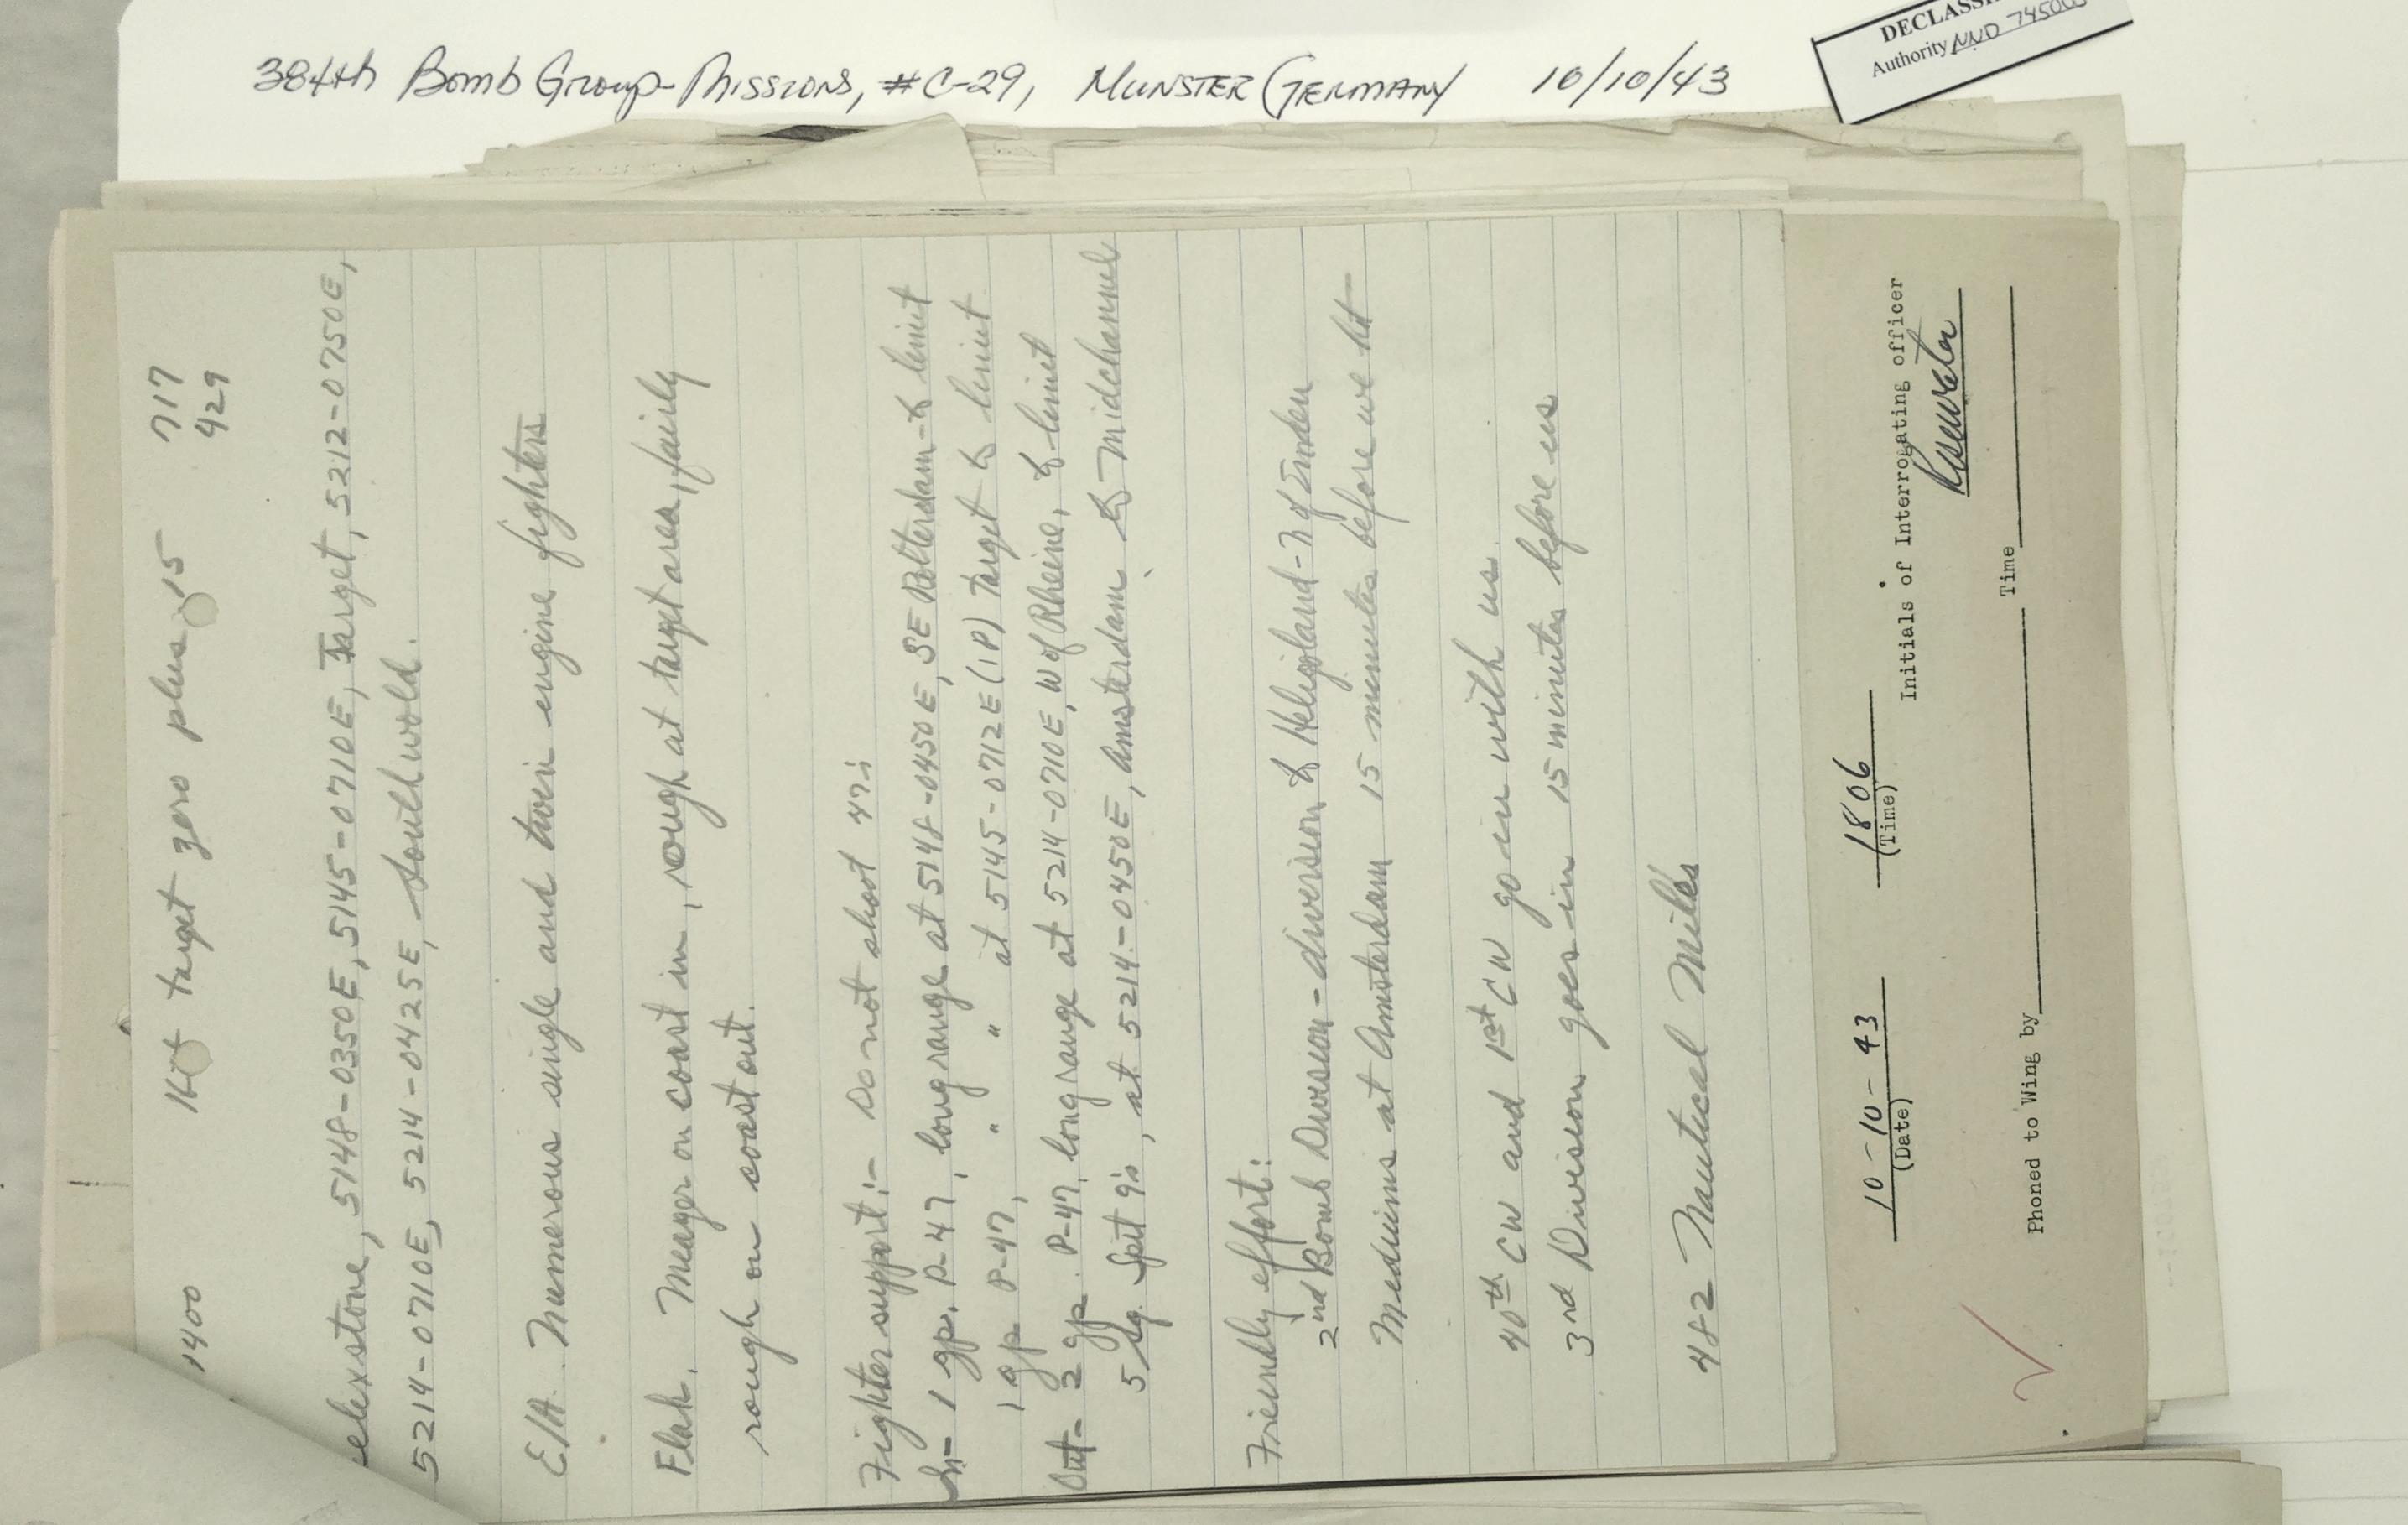 384th Bomb Group-Missions, #C-29, MUNSTER GERMANY 10/10/43
DECLASS
Authority NND 745005
1400 Hit target zero plus 15 717
429
elixstowe, 5148-0350E, 5145-0710E, Target, 5212-0750E,
5214-0710E, 5214-0425E, Southwold.
E/A. Numerous single and twin engine fighters
Flak. Meager on coast in, rough at target area, fairly
rough on coast out.
Fighter support:- Do not shoot 47's
In- 1 gp. P-47, long range at 5148-0450E, SE Rotterdam-to limit
1 gp P-47, " " at 5145-0712E (IP) Target to limit
Out- 2 gp. P-47, long range at 5214-0710E, W of Rheine, to limit
5 sq. Spit 9's, at 5214-0450E, Amsterdam to Midchannel
Friendly effort:
2nd Bomb Division- diversion to Heligland- N of Emden
Mediums at Amsterdam 15 minutes before we hit-
40th CW and 1st CW go in with us.
3rd Division goes in 15 minutes before us
482 Nautical Miles
10-10-43 1806
(Date) (Time)
Initials of Interrogating officer
Phoned to Wing by Time